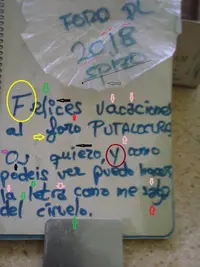 FORO PL
2018
Felices vacaciones
al foro PUTALOCURA
Os quiero, y como
podeis ver puedo hacer
la letra como me salga
del ciruelo.